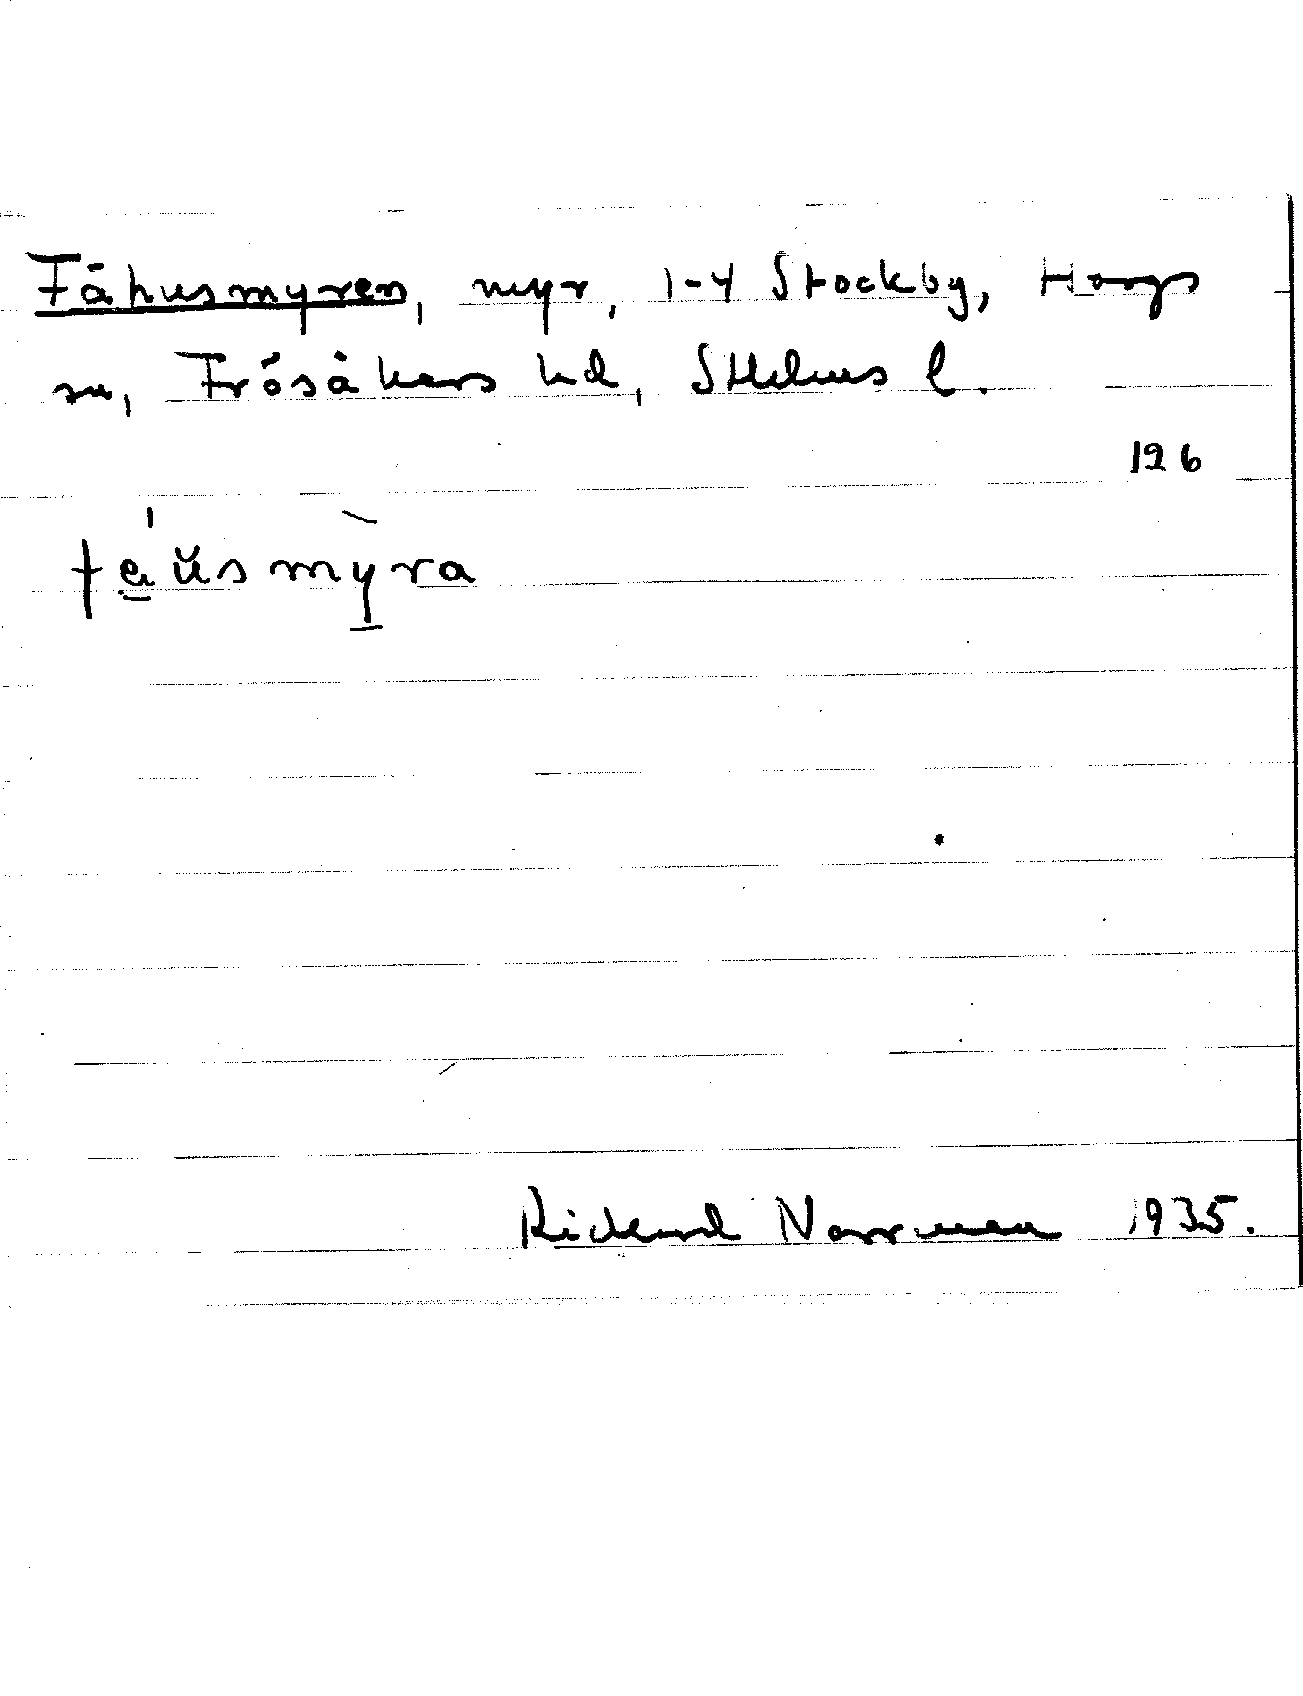 Fähusmyren, myr, 1-4 Stockby, Hargs
sn, Frösåkers hd, Sthlms l.
126
Rickard Norrman 1935.